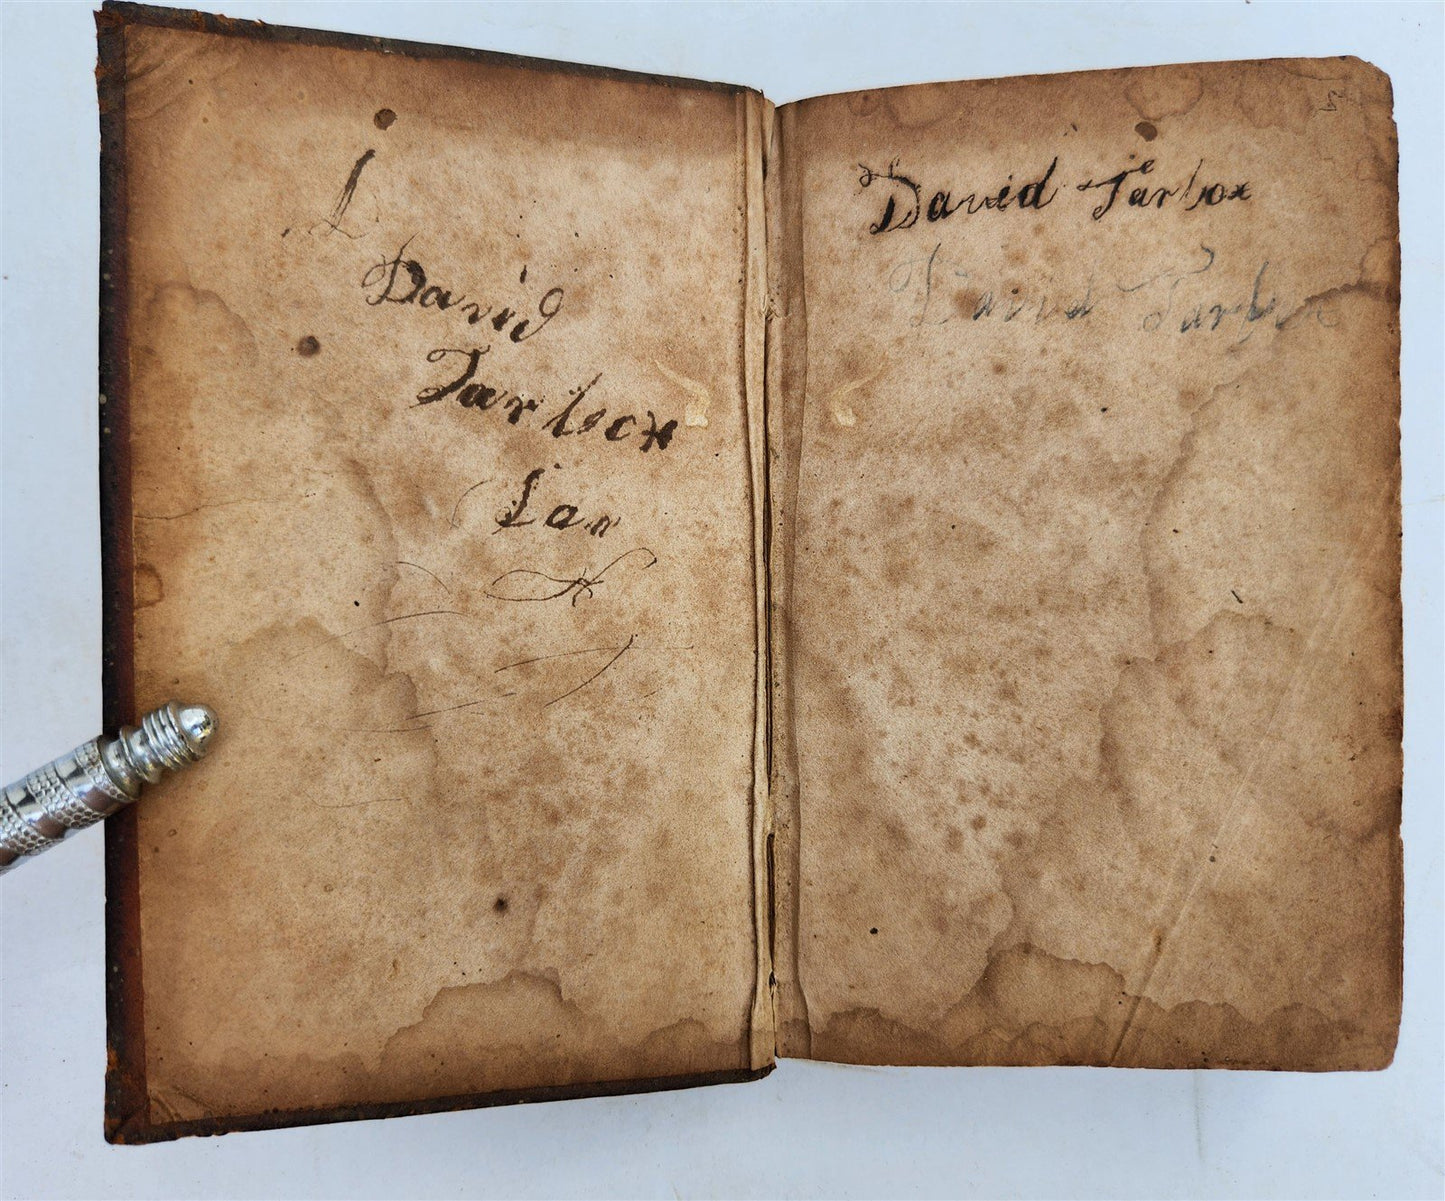 David
Tarbox
Tar
David Tarbox
David Tarbox